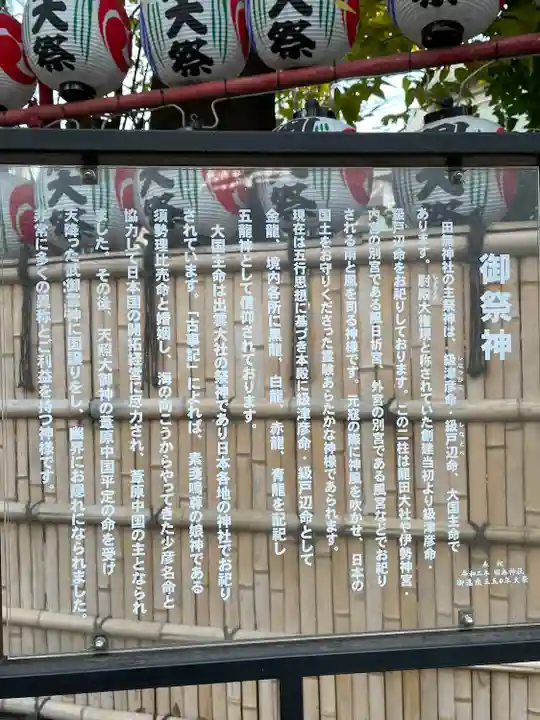 大祭
大祭
大祭
大祭
御祭神
田無神社の主祭神は、級津彦命・級戸辺命、大国主命で
あります。尉殿大権現と称されていた創建当初より級津彦命・
級戸辺命をお祀りしております。この二柱は龍田大社や伊勢神宮・
内宮の別宮である風日祈宮・外宮の別宮である風宮などでお祀り
される雨と風を司る神様です。元寇の際に神風を吹かせ、日本の
国土をお守りくださった霊験あらたかな神様であられます。
現在は五行思想に基づき本殿に級津彦命・級戸辺命として
金龍、境内各所に黒龍、白龍、赤龍、青龍を配祀し
五龍神として信仰されております。
大国主命は出雲大社の祭神であり日本各地の神社でお祀り
されています。「古事記」によれば、素戔嗚尊の娘神である
須勢理比売命と婚姻し、海の向こうからやってきた少彦名命と
協力して日本国の開拓経営に尽力され、葦原中国の主となられ
ました。その後、天照大御神の葦原中国平定の命を受け
天降った武御雷神に国譲りをし、幽界にお隠れになられました。
非常に多くの異称とご利益を持つ神様です。
奉祝
令和二年 田無神社
御遷座三五〇年大祭